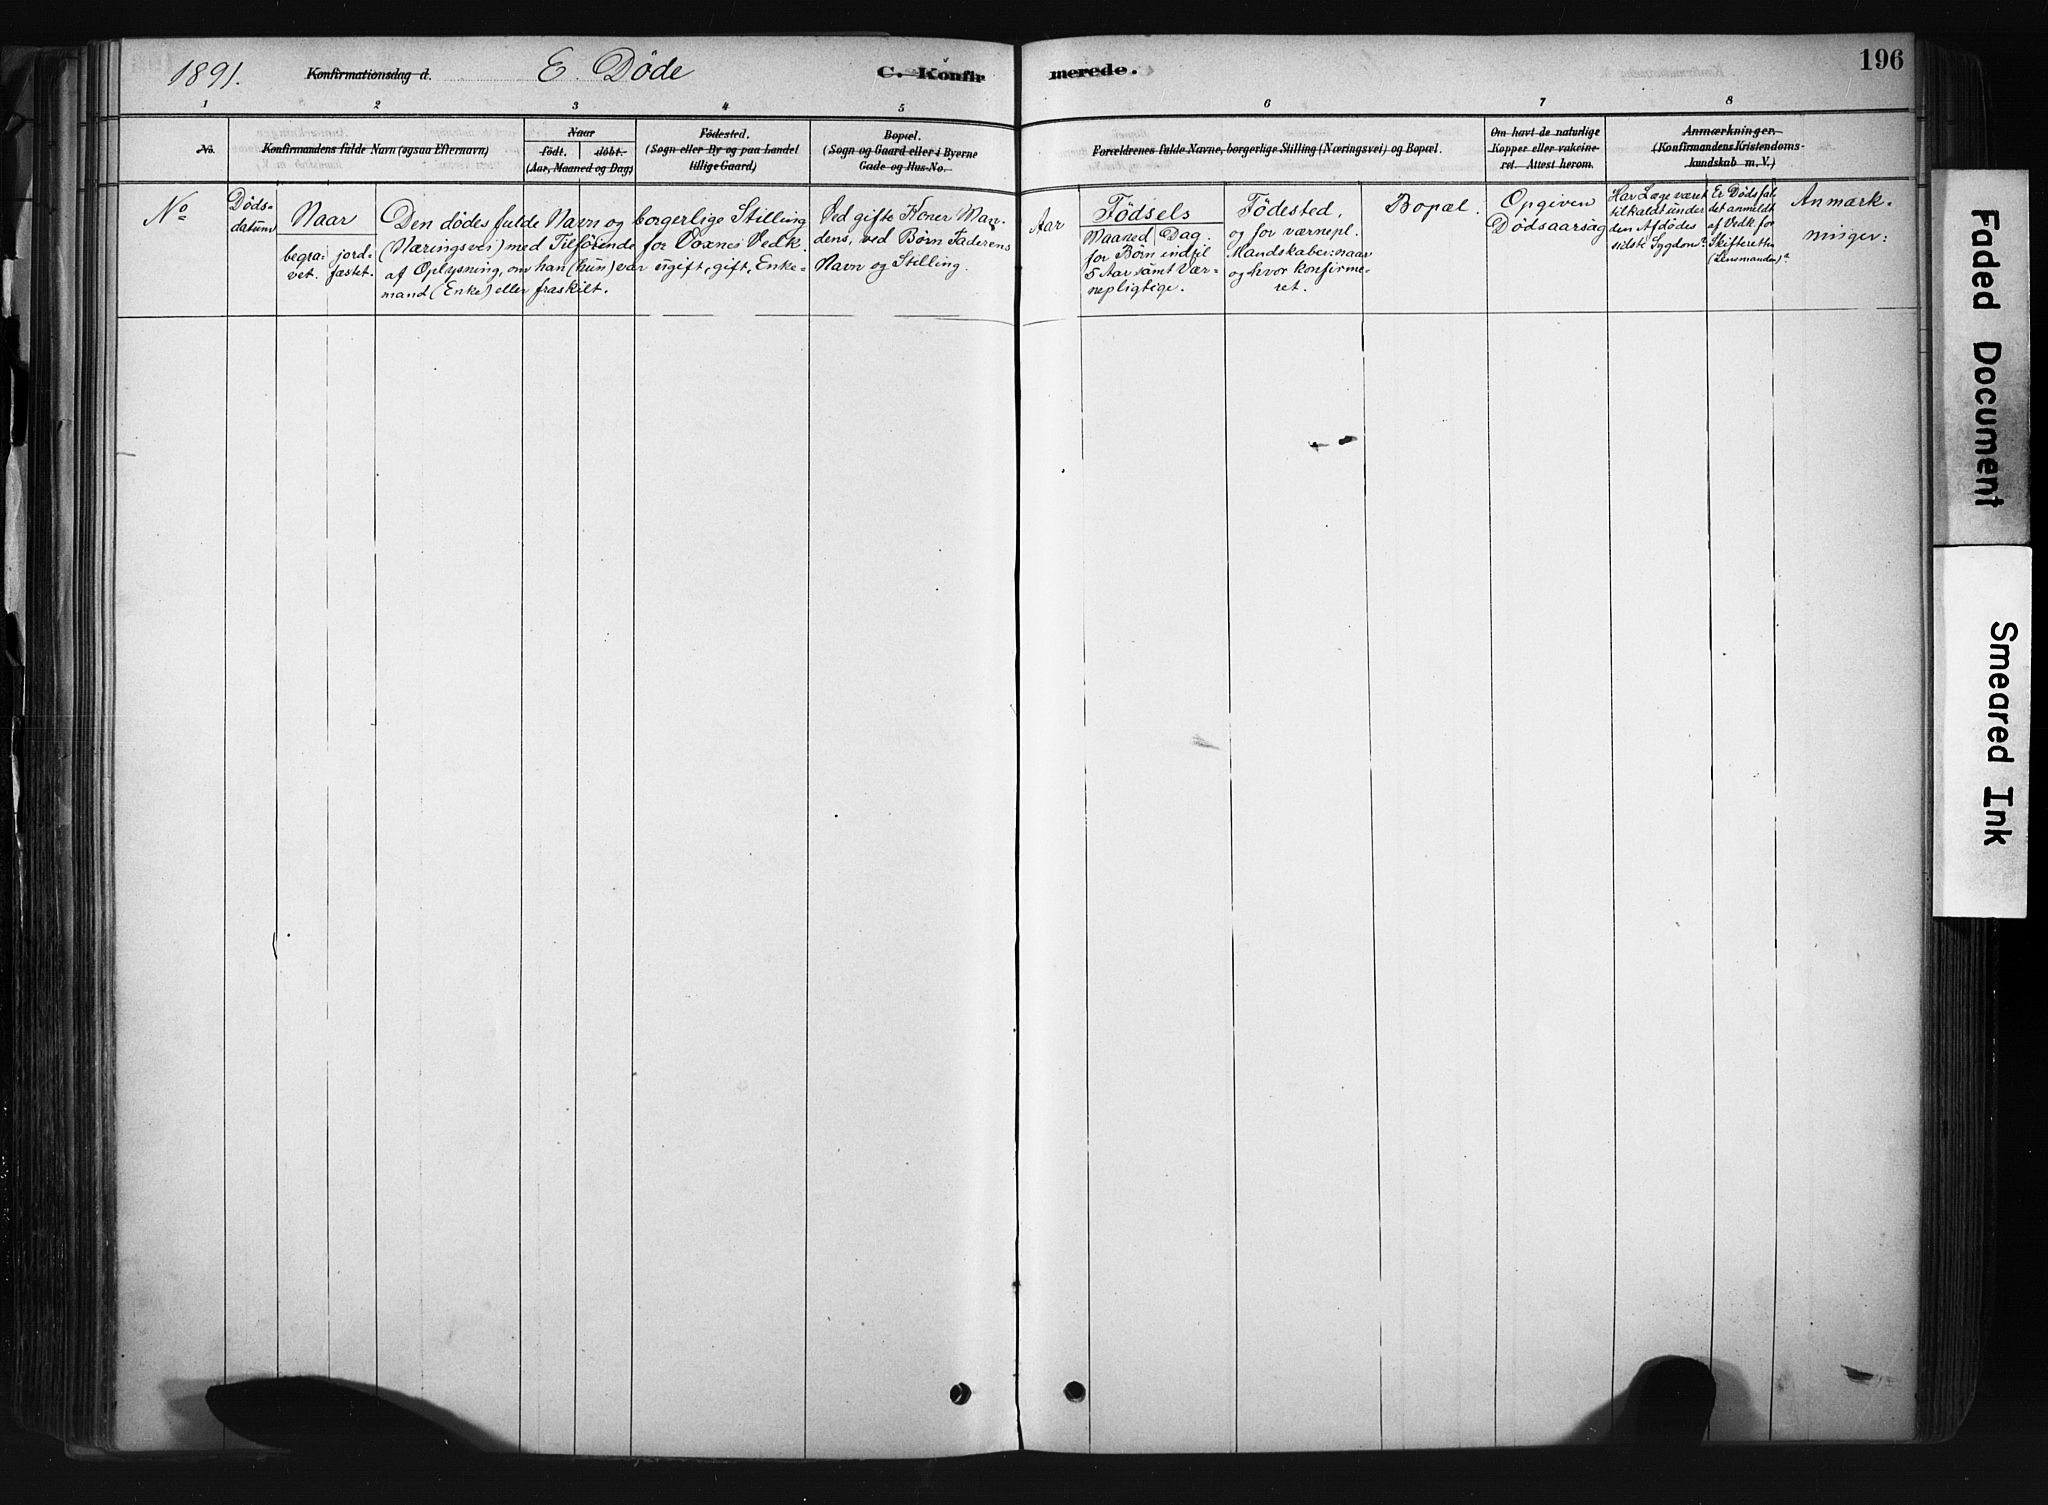 1891.
Konfirmationsdag d.
E. Döde
C. Konfirmerede.
196
1
2
3
4
5
6
7
8
No.
Konfirmandens fulde Navn (ogsaa Efternavn)
Naar
födt.
döbt.
(Aar, Maaned og Dag)
Födested.
(Sogn eller By og paa Landet
tillige Gaard)
Bopæl.
(Sogn og Gaard eller i Byerne
Gade og Hus-No.
Forældrenes fulde Navne, borgerlige Stilling (Næringsvei) og Bopæl.
Om havt de naturlige
Kopper eller vakcine-
ret. Attest herom.
Anmærkninger.
(Konfirmandens Kristendoms-
kundskab m. V.)
No
Døds-
datum
Naar
begra-
vet.
jord-
fæstet.
Den dödes fulde Navn og borgerlige Stilling
(Næringsvei) med Tilföiende for Voxnes Vedk.
af Oplysning, om han (hun) var ugift, gift, Enke-
mand (Enke) eller fraskilt.
Ved gifte Koner Man-
dens, ved Børn Faderens
Navn og Stilling.
Aar
Födsels
Maaned | Dag.
for Børn indtil
5 Aar samt Vær-
nepligtige.
Födested,
og for værnepl.
Mandskaber: naar
og hvor konfirme-
ret.
Bopæl.
Opgiven
Dødsaarsag
Har Læge været
tilkaldt under
den Afdødes
sidste Sygdom?
Er Dødsfal-
det anmeldt
af Vedk. for
Skifteretten
(Lensmanden)?
Anmærk-
ninger:
Faded Document
Smeared Ink